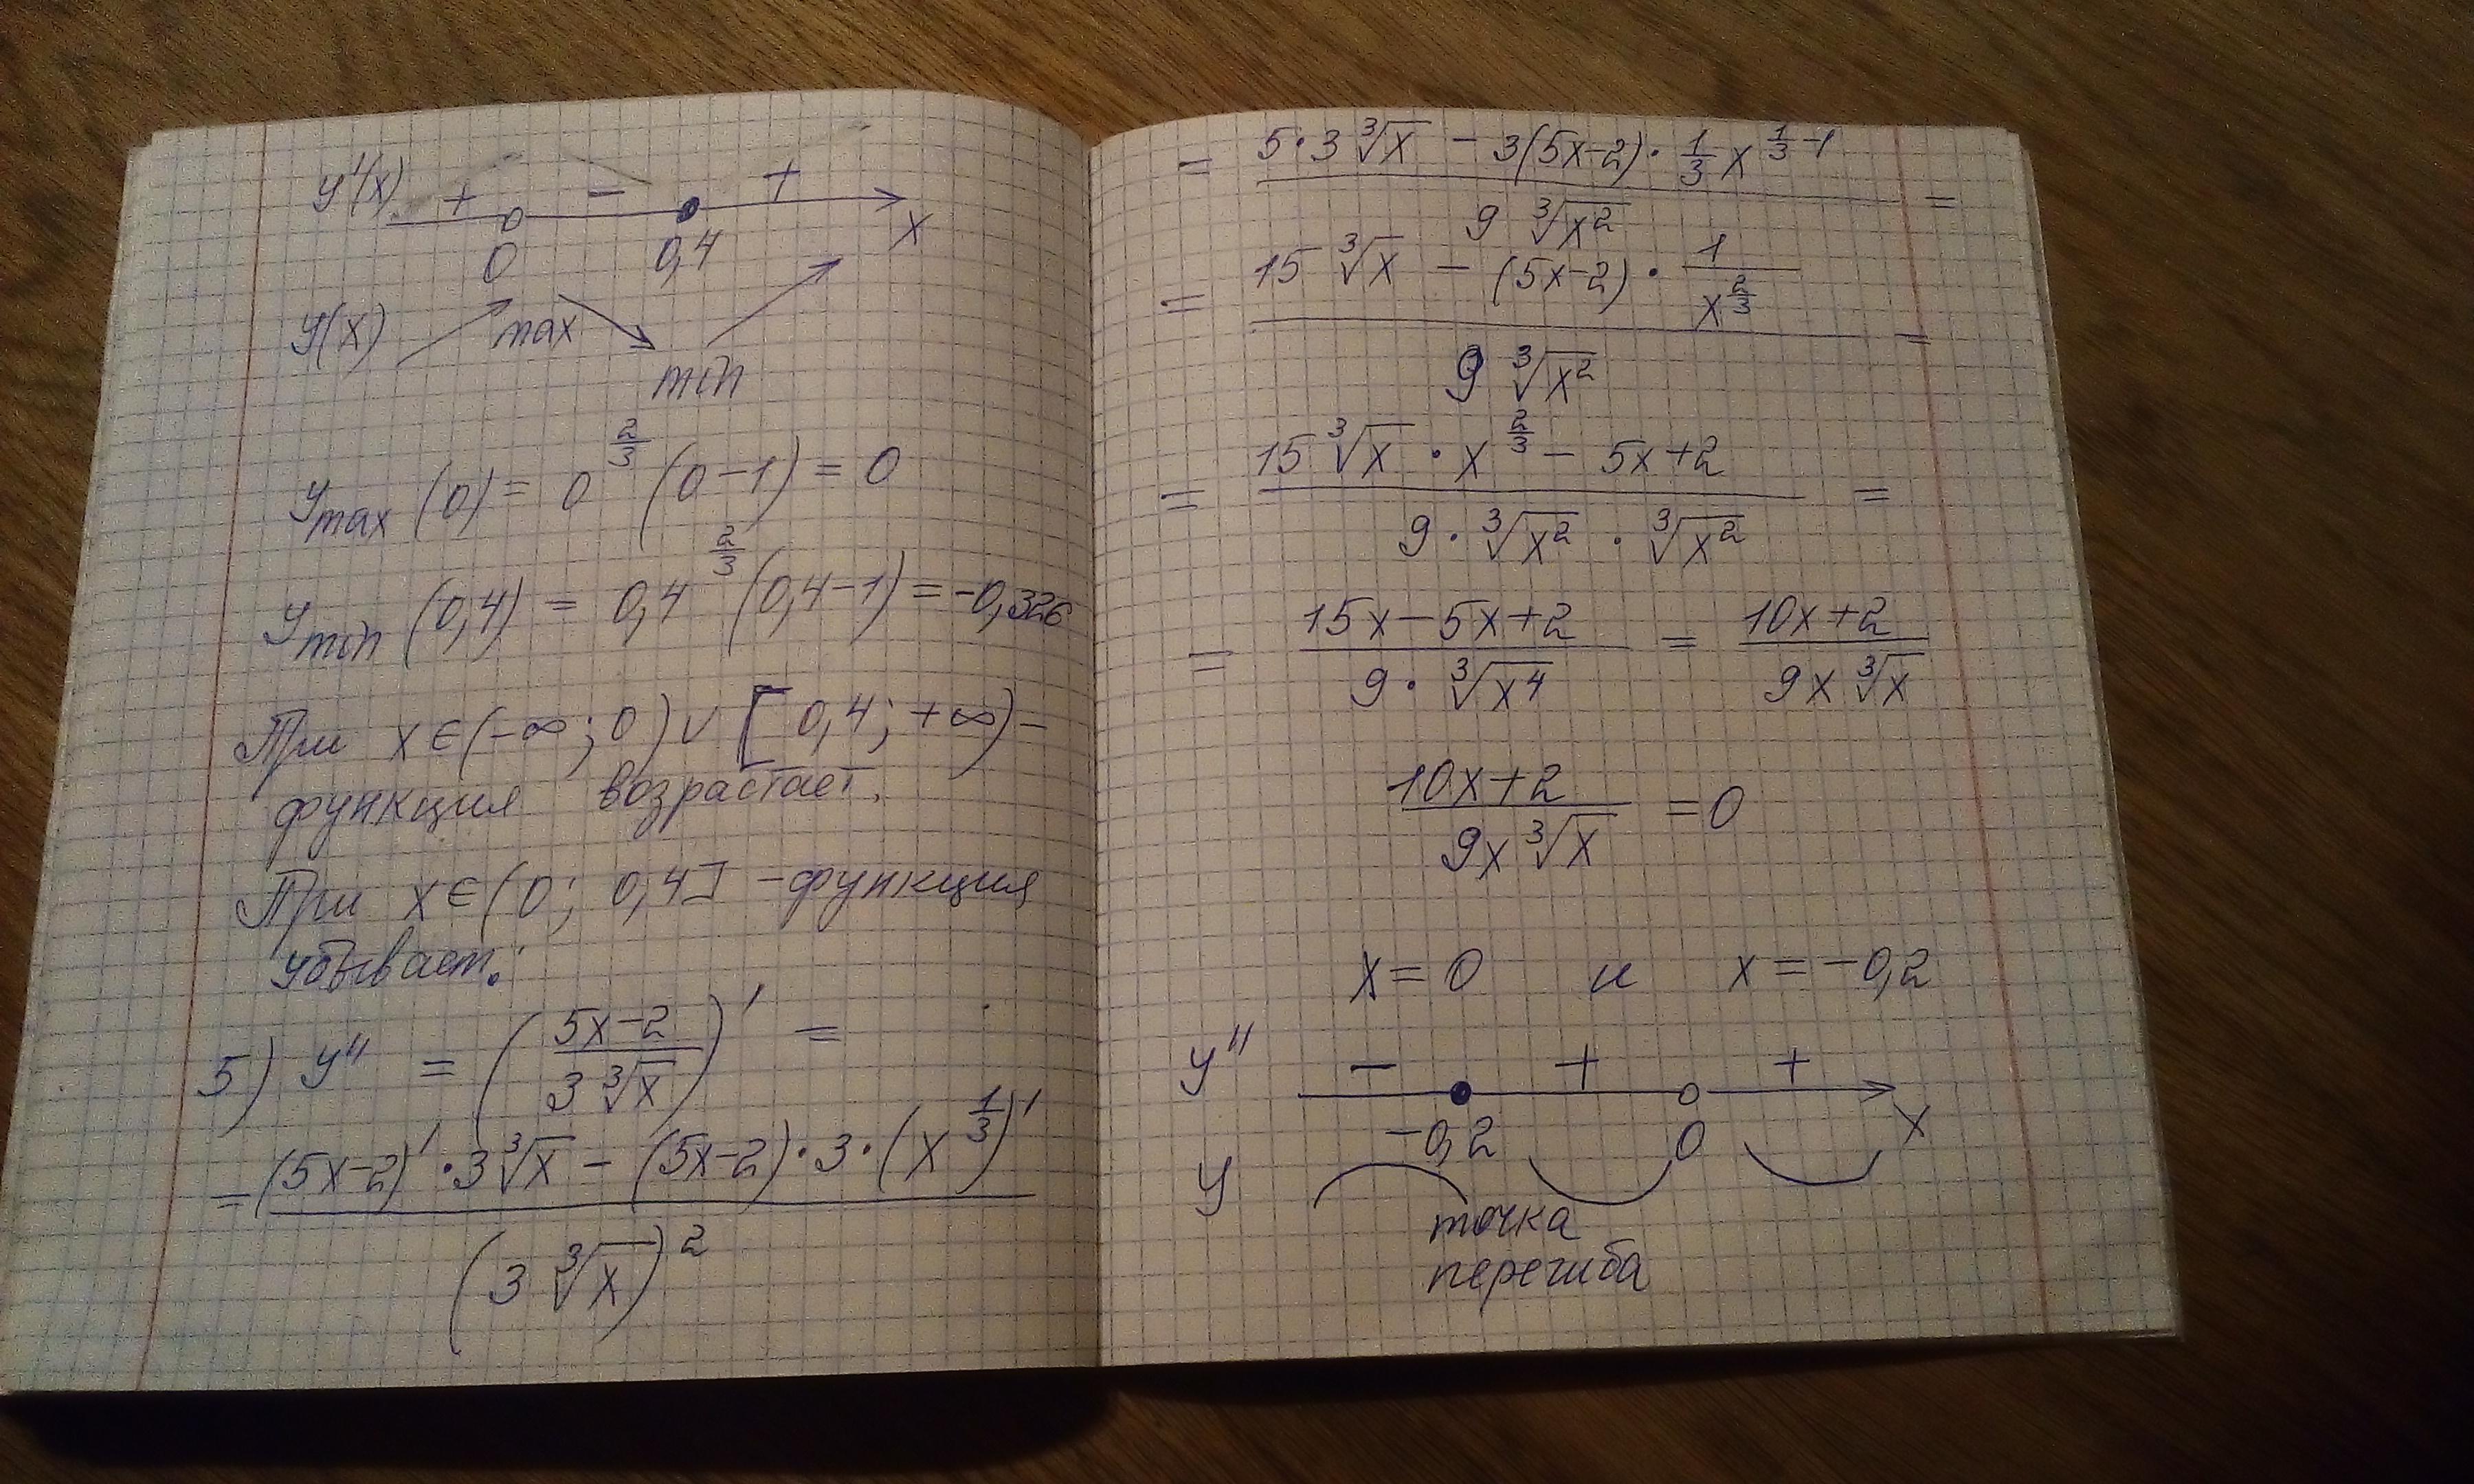 y'(x) + - + x
0 0,4
y(x) max min
y_max (0) = 0^{2/3} (0-1) = 0
y_min (0,4) = 0,4^{2/3} (0,4-1) = -0,326
При x∈(-∞; 0) ∪ [0,4; +∞) -
функция возрастает.
При x∈(0; 0,4] - функция
убывает.
5) y'' = ((5x-2)/(3∛x))' =
= ((5x-2)'·3∛x - (5x-2)·3·(x^{1/3})')/(3∛x)^2
= (5·3∛x - 3(5x-2)·1/3 x^{1/3-1})/(9∛(x^2)) =
= (15∛x - (5x-2)·1/x^{2/3})/(9∛(x^2)) =
= (15∛x·x^{2/3} - 5x+2)/(9·∛(x^2)·∛(x^2)) =
= (15x-5x+2)/(9·∛(x^4)) = (10x+2)/(9x∛x)
(10x+2)/(9x∛x) = 0
x = 0 и x = -0,2
y'' - + + x
-0,2 0
y
точка
перегиба